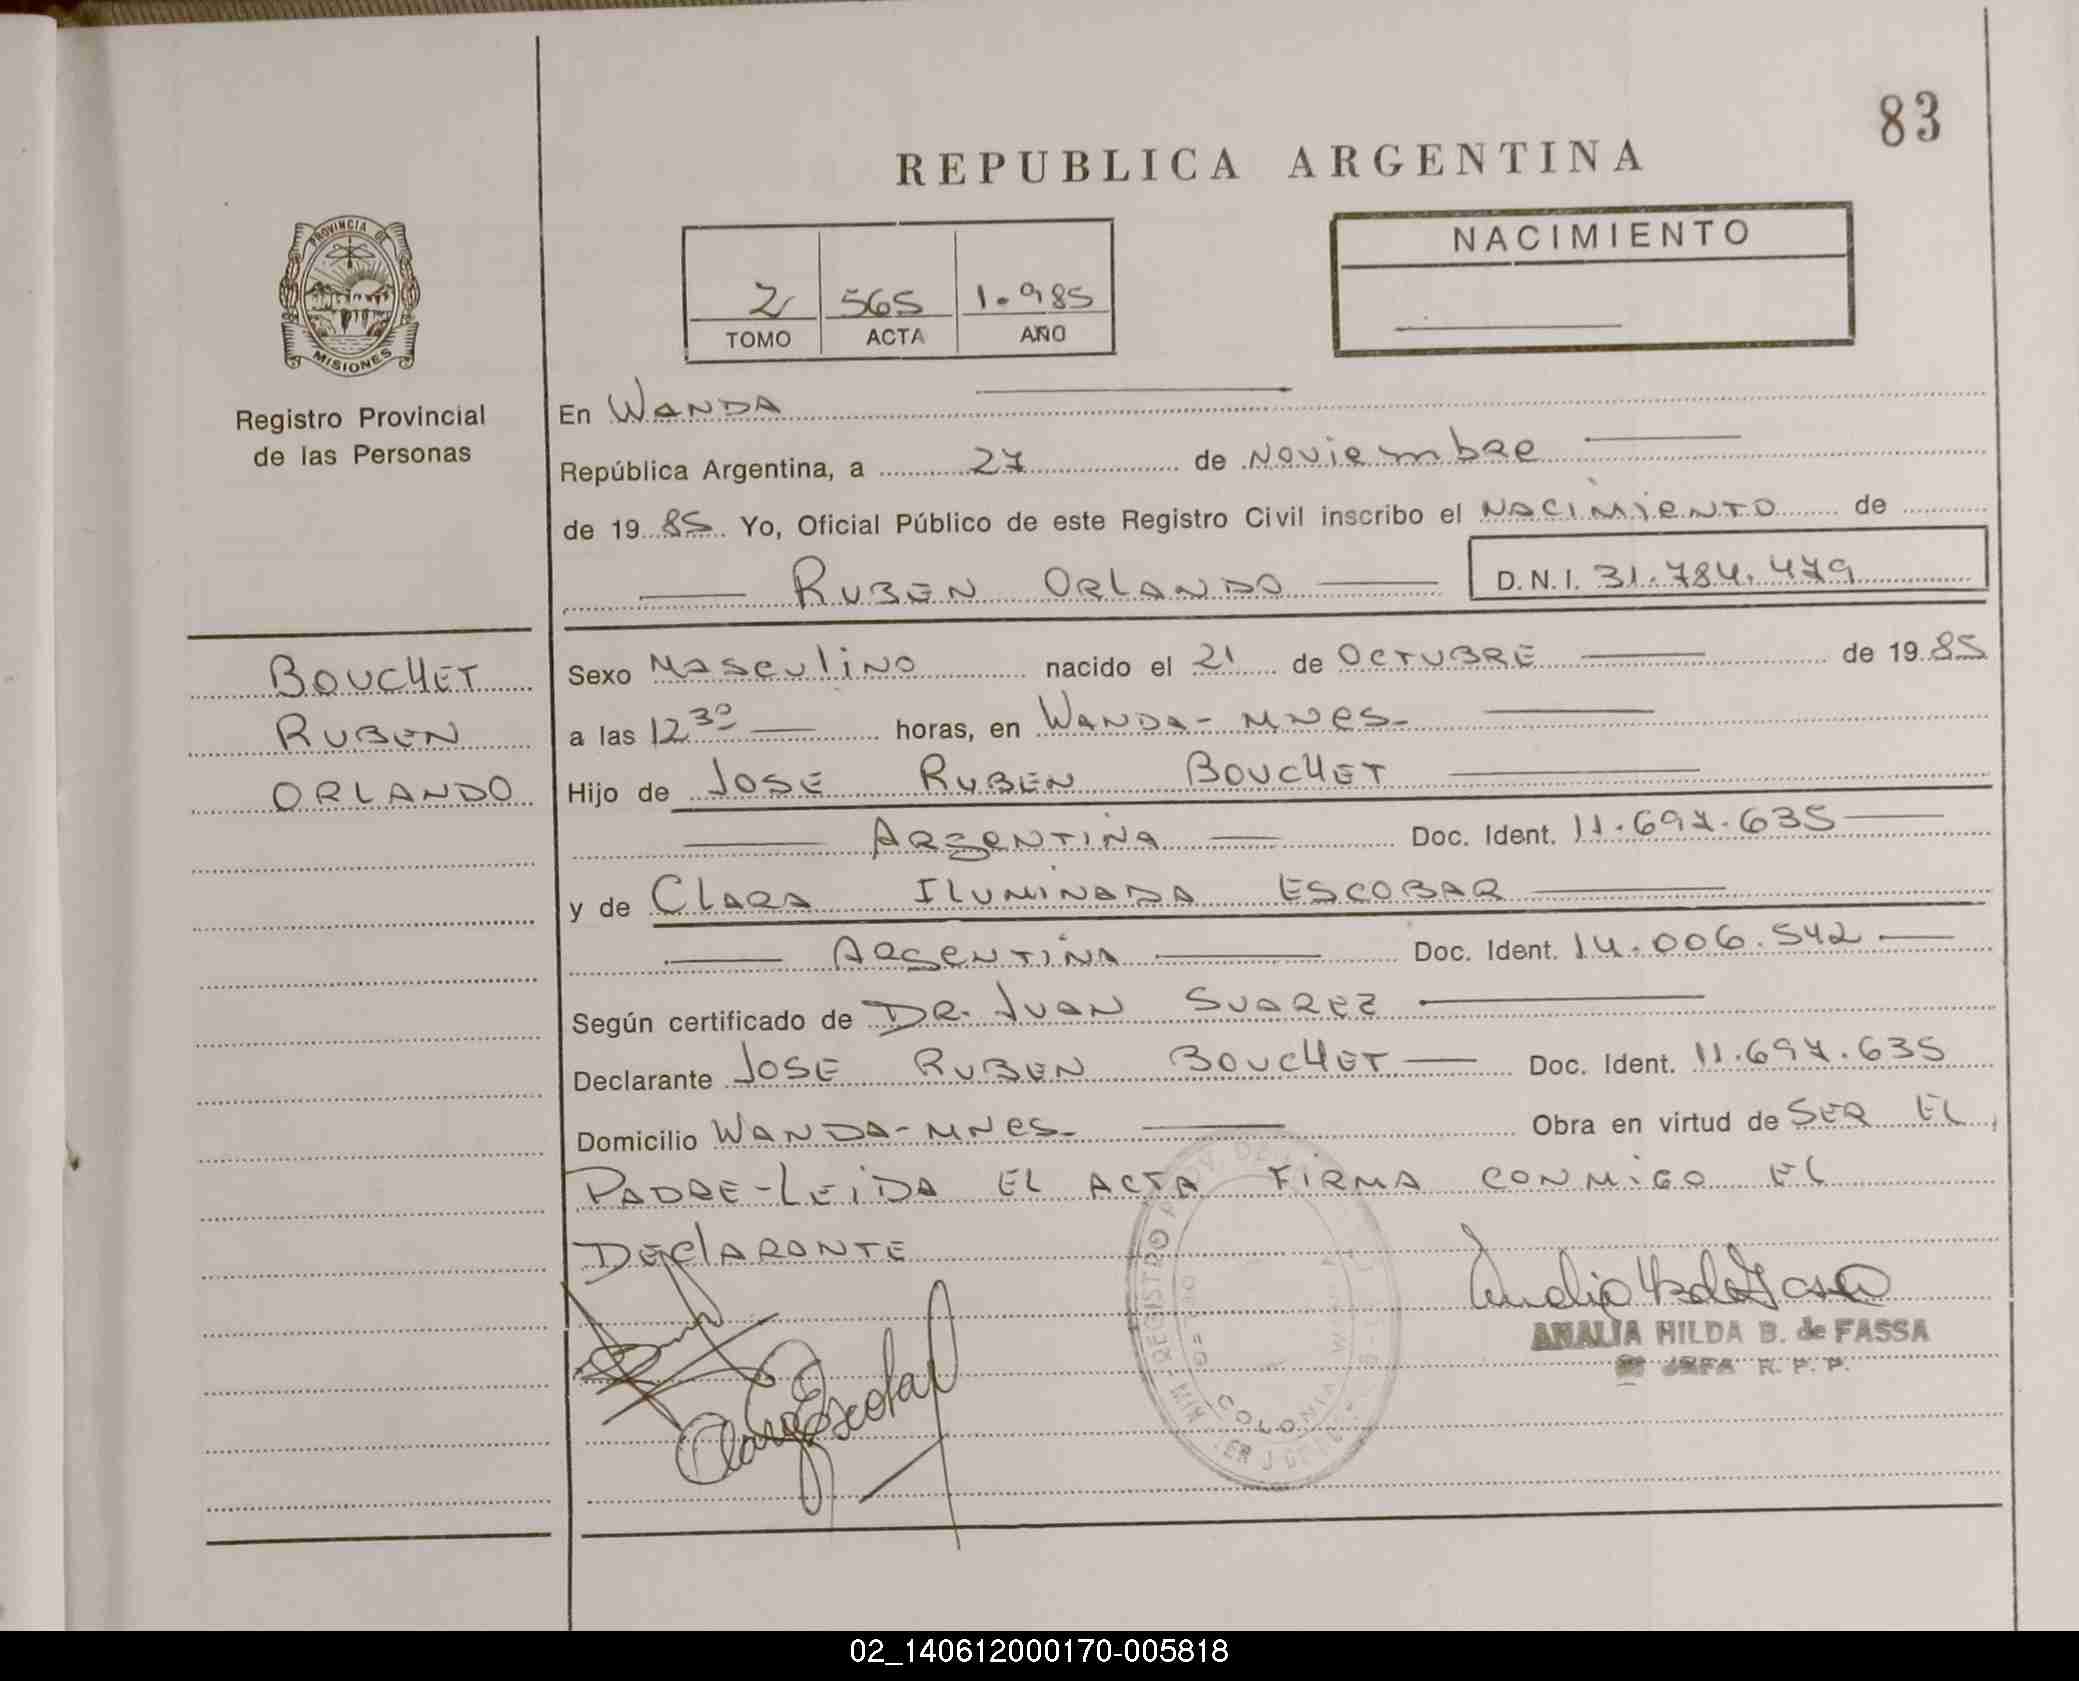 83
REPUBLICA ARGENTINA
PROVINCIA DE
MISIONES
Registro Provincial
de las Personas
2 565 1.985
TOMO ACTA AÑO
NACIMIENTO
En WANDA
República Argentina, a 27 de Noviembre
de 1985 Yo, Oficial Público de este Registro Civil inscribo el NACIMIENTO de
RUBEN ORLANDO D.N.I. 31.784.479
BOUCHET
RUBEN
ORLANDO
Sexo Masculino nacido el 21 de OCTUBRE de 1985
a las 12 30 horas, en WANDA-MNES-
Hijo de JOSE RUBEN BOUCHET
ARGENTINA Doc. Ident. 11.697.635
y de CLARA ILUMINADA ESCOBAR
ARGENTINA Doc. Ident. 14.006.542
Según certificado de DR. JUAN SUAREZ
Declarante JOSE RUBEN BOUCHET Doc. Ident. 11.697.635
Domicilio WANDA-MNES- Obra en virtud de SER EL
PADRE-LEIDA EL ACTA FIRMA CONMIGO EL
DECLARANTE
REGISTRO PROV. DE
COLONIA WANDA
ANALIA HILDA B. de FASSA
JEFA R. P. P.
02_140612000170-005818